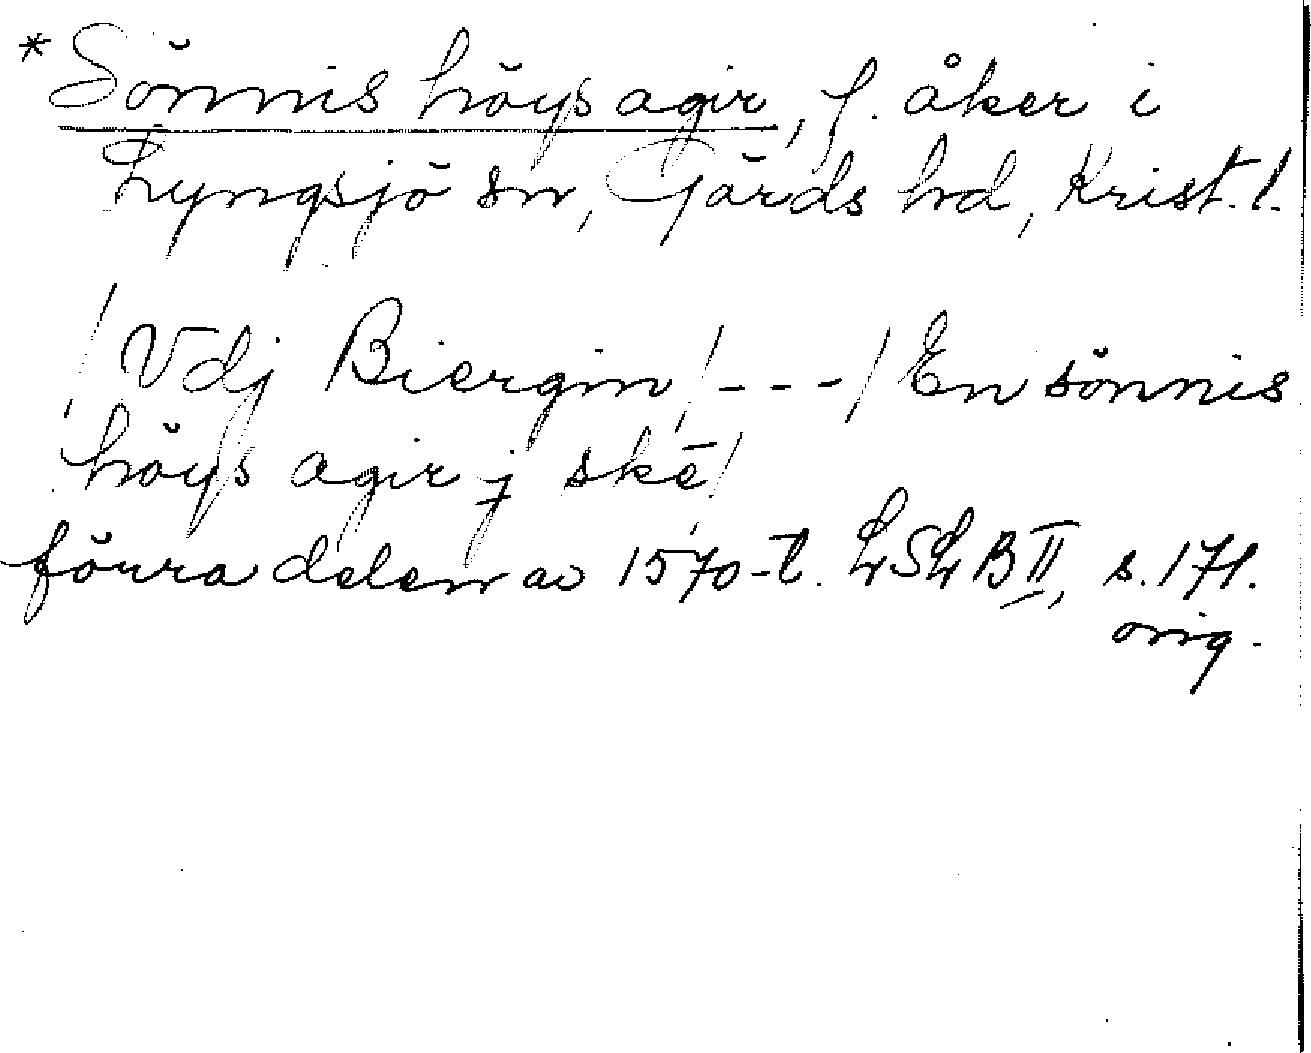 *Sönnis höys agir, f. åker i
Lyngsjö sn, Gärds hd, Krist. l.
/Vdj Biergin/---/En sönnis
höys agir j skē/
förra delen av 1570-t. LSLB II, s. 171.
orig.